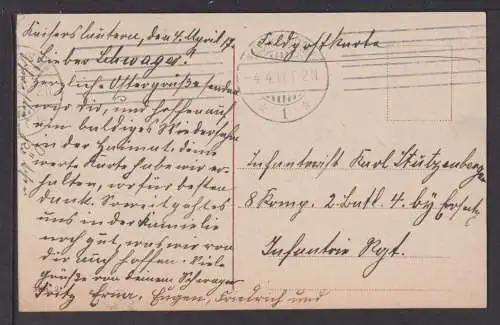 Kaiserslautern, den 4. April 17.
Lieber Schwager!
Herzliche Ostergrüße senden
wir dir, und hoffen auf
ein baldiges Wiedersehn
in der Heimat. deine
werte Karte habe wir er-
halten, wofür besten
dank. Soweit geht es
uns in der Familie
noch gut, was wir von
dir auch hoffen. Viele
Grüße von deinem Schwager
Fritz Erna, Eugen, Friedrich und
Feldpostkarte
4.4.17. 1-2N
1
Infantrist Karl Stützenberger
8 Komp. 2. Batl. 4. by Ersatz
Infantrie Rgt.